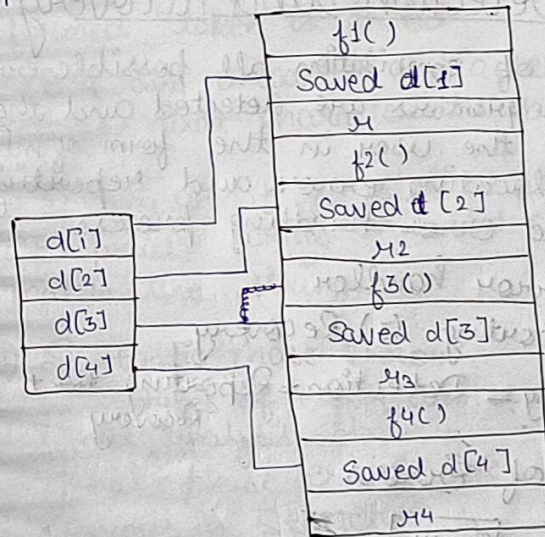 f1()
Saved d[1]
r
f2()
Saved d[2]
r2
f3()
Saved d[3]
r3
f4()
Saved d[4]
r4
d[1]
d[2]
d[3]
d[4]